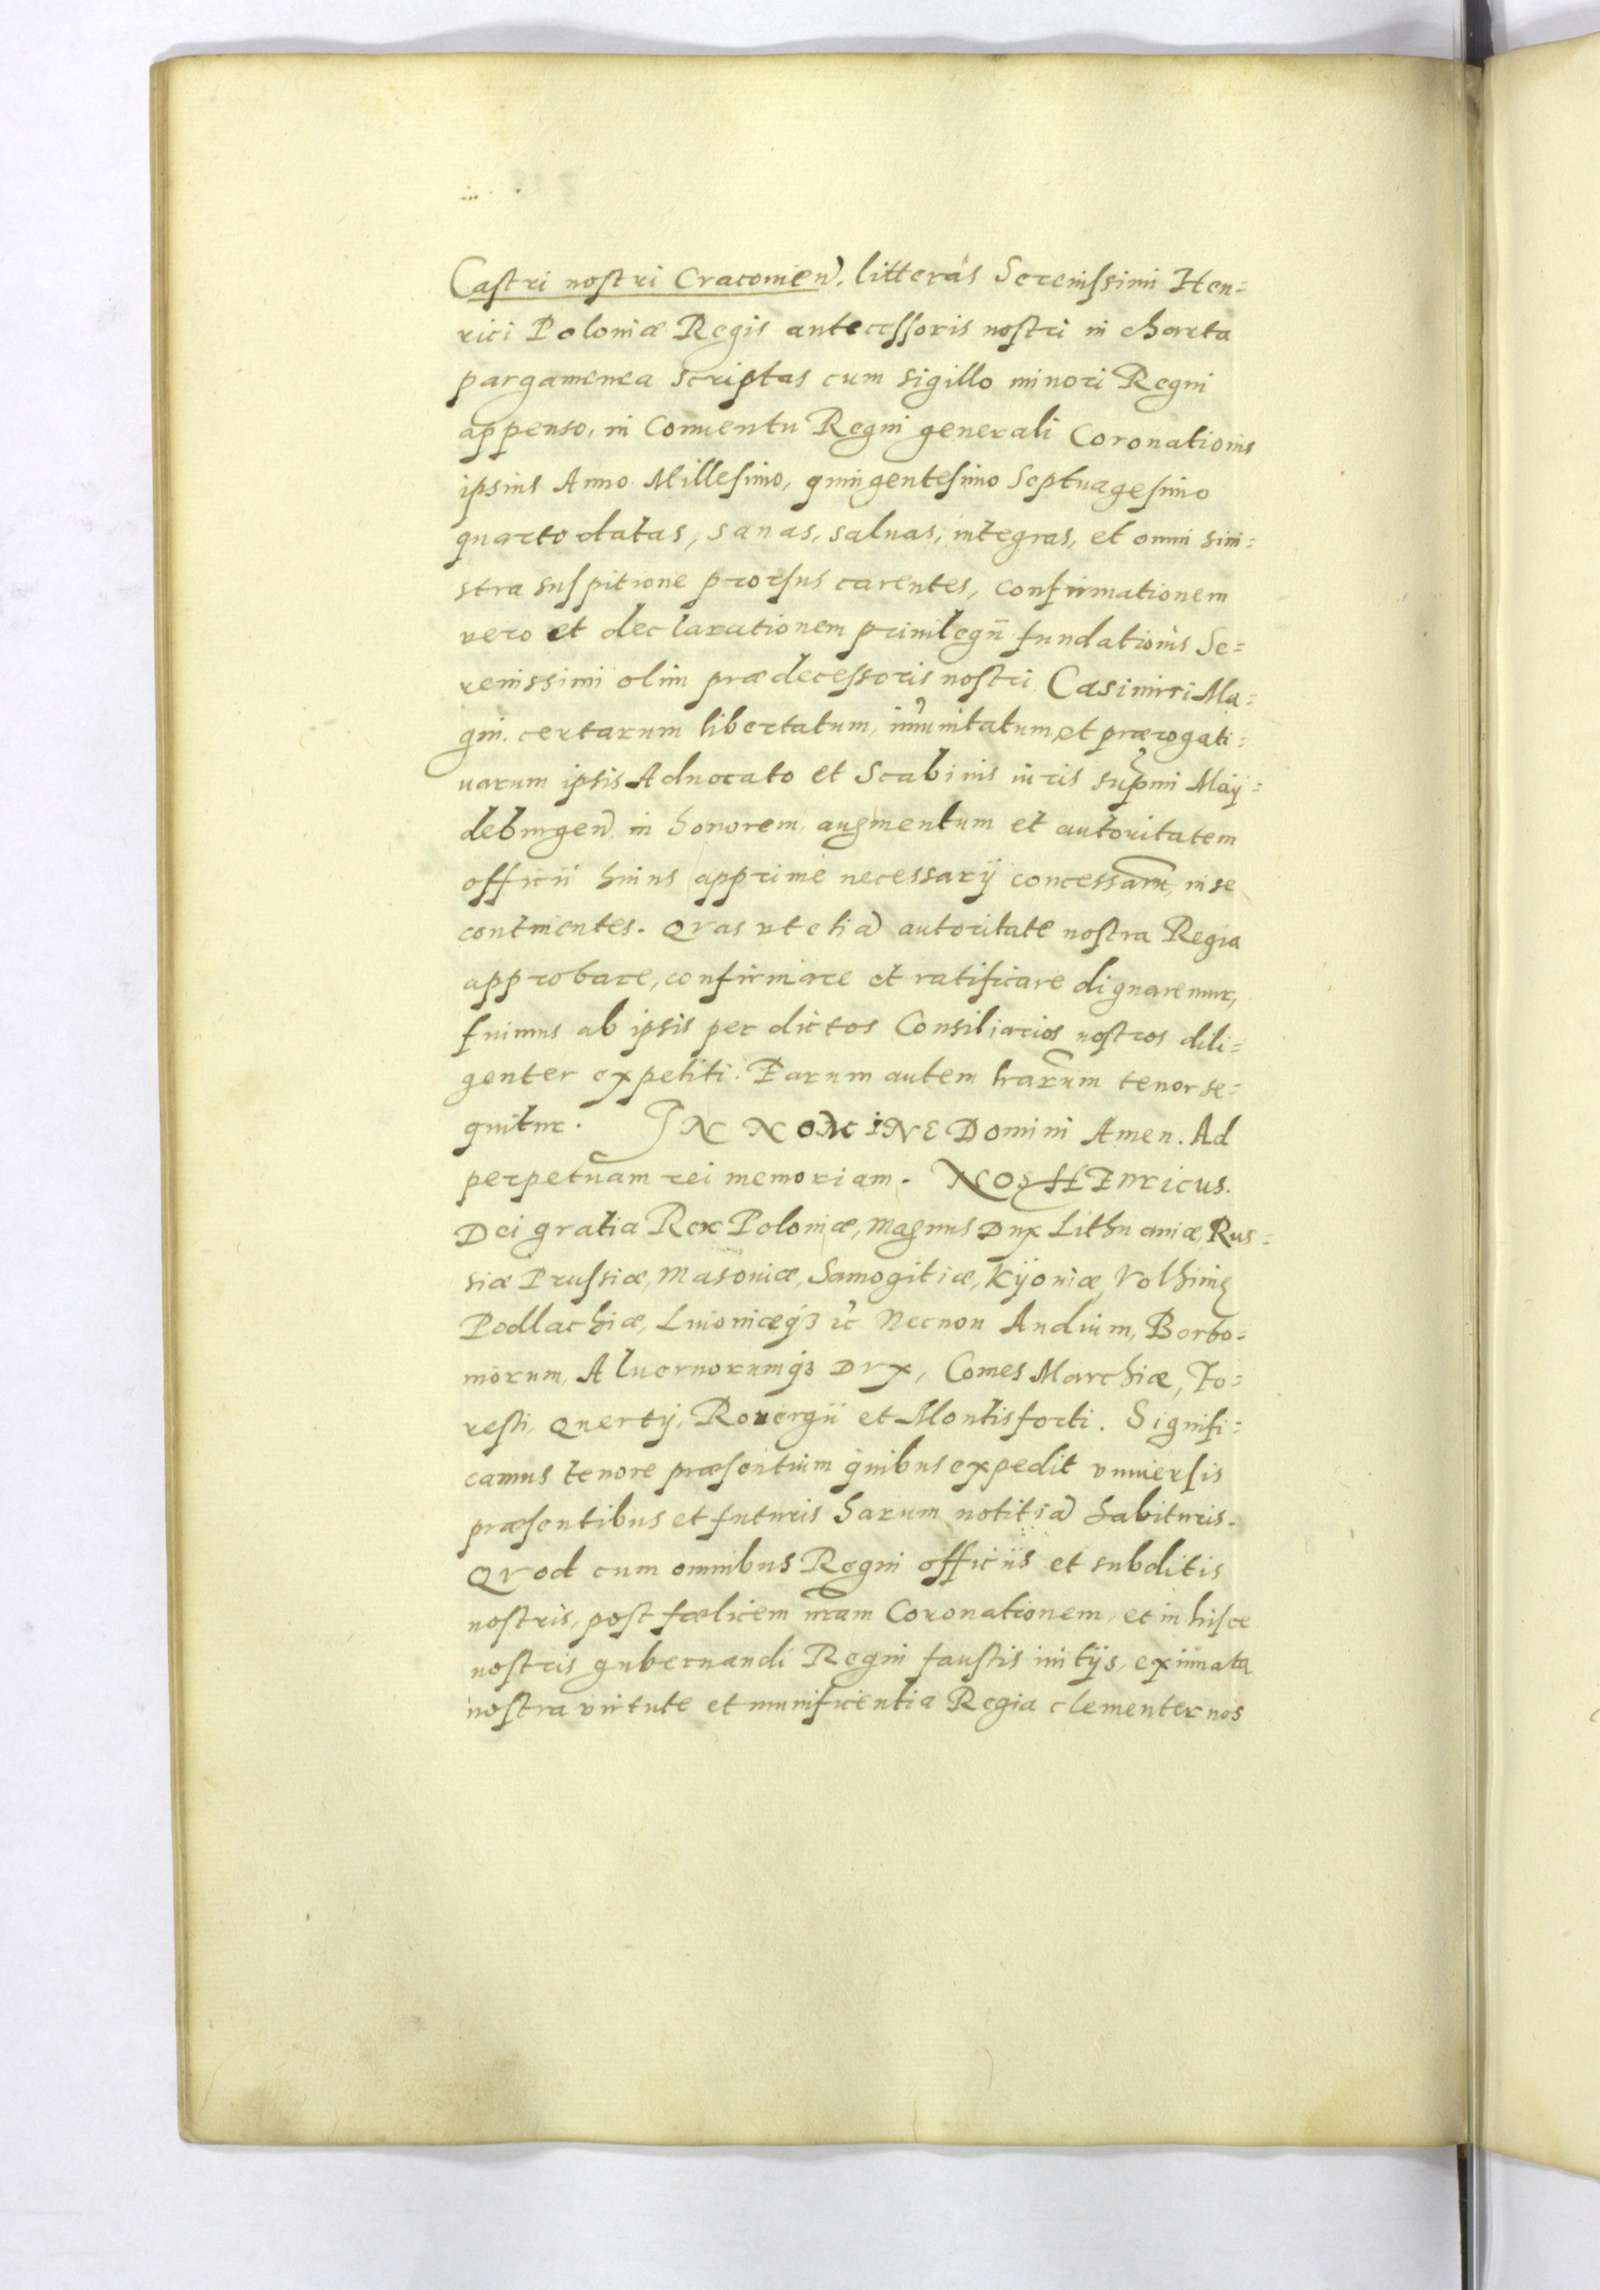 Castri nostri Cracouien. litteras Serenissimi Hen=
rici Poloniæ Regis antecessoris nostri in charta
pargamenea scriptas cum sigillo minori Regni
appenso, in Conuentu Regni generali Coronationis
ipsius Anno Millesimo, quingentesimo Septuagesimo
quarto datas, sanas, saluas, integras, et omni sini=
stra suspitione prorsus carentes, confirmationem
vero et declarationem priuilegii fundationis Se=
renissimi olim prædecessoris nostri Casimiri Ma=
gni. certarum libertatum, im̃unitatum, et prærogati=
uarum ipsis Aduocato et Scabinis iuris sup̃mi May=
deburgen. in honorem, augmentum et autoritatem
officii huius apprime necessarij concessarum, in se
continentes. Qvas vt etiã autoritate nostra Regia
approbare, confirmare et ratificare dignaremur,
fuimus ab ipsis per dictos Consiliarios nostros dili=
genter expetiti. Earum autem l̃rarum tenor se=
quitur. IN NOMINE Domini Amen. Ad
perpetuam rei memoriam. NOS HENricus.
Dei gratia Rex Poloniæ, Magnus Dux Lithuaniæ, Rus=
siæ Prussiæ, Masouiæ, Samogitiæ, Kijouiæ, Volhiniæ
Podlachiæ, Liuoniæqȝ ꝛc̃ Necnon Andium, Borbo=
niorum, Aluernorumqȝ Dvx, Comes Marchiæ, Fo=
resti, Quertij, Rouergii et Montisforti. Signifi=
camus tenore præsentium quibus expedit vniuersis
præsentibus et futuris harum notitiã habituris.
Qvod cum omnibus Regni officiis et subditis
nostris, post fœlicem nr̃am Coronationem, et in hisce
nostris gubernandi Regni faustis initijs, ex innata
nostra virtute et munificentia Regia clementer nos